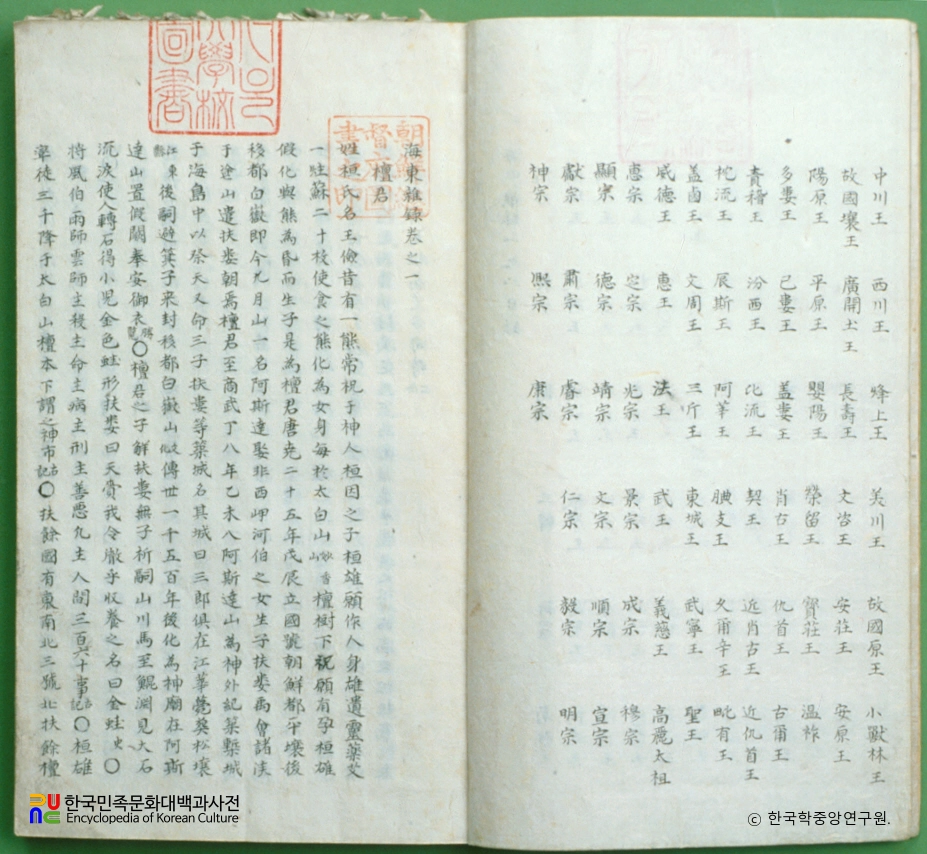 中川王 西川王 烽上王 美川王 故國原王 小獸林王
故國壤王 廣開土王 長壽王 文咨王 安莊王 安原王
陽原王 平原王 嬰陽王 榮留王 寳莊王 温祚
多婁王 己婁王 盖婁王 肖古王 仇首王 古爾王
責稽王 汾西王 比流王 契王 近肖古王 近仇首王
枕流王 辰斯王 阿莘王 腆支王 久爾辛王 毗有王
盖鹵王 文周王 三斤王 東城王 武寧王 聖王
威德王 惠王 法王 武王 義慈王 高麗太祖
惠宗 定宗 光宗 景宗 成宗 穆宗
顯宗 德宗 靖宗 文宗 順宗 宣宗
獻宗 肅宗 睿宗 仁宗 毅宗 明宗
神宗 熙宗 康宗
海東雜錄卷之一
檀君
姓桓氏名王儉昔有一熊常祝于神人桓因之子桓雄願作人身雄遺靈藥艾
一炷蒜二十枚使食之熊化為女身每於太白山妙香山檀樹下祝願有孕桓雄
假化與熊為昏而生子是為檀君唐堯二十五年戊辰立國號朝鮮都平壤後
移都白嶽即今九月山一名阿斯達娶非西岬河伯之女生子扶婁禹會諸侯
于塗山遣扶婁朝焉檀君至商武丁八年乙未入阿斯達山為神外紀築塹城
于海島中以祭天又命三子扶婁等築城名其城曰三郎俱在江華薨葵松壤
江東縣後嗣避箕子來封移都白嶽山傳世一千五百年後化為神廟在阿斯
達山置假闕奉安御衣〇檀君之子解扶婁無子祈嗣山川馬至鯤淵見大石
流波使人轉石得小児金色蛙形扶婁曰天賚我令胤乎収養之名曰金蛙史〇
将風伯雨師雲師主穀主命主病主刑主善惡凡主人間三百六十事古記〇桓雄
率徒三千降于太白山檀木下謂之神市古記〇扶餘國有東南北三號北扶餘檀
大學校
圖書
한국민족문화대백과사전
Encyclopedia of Korean Culture
© 한국학중앙연구원.